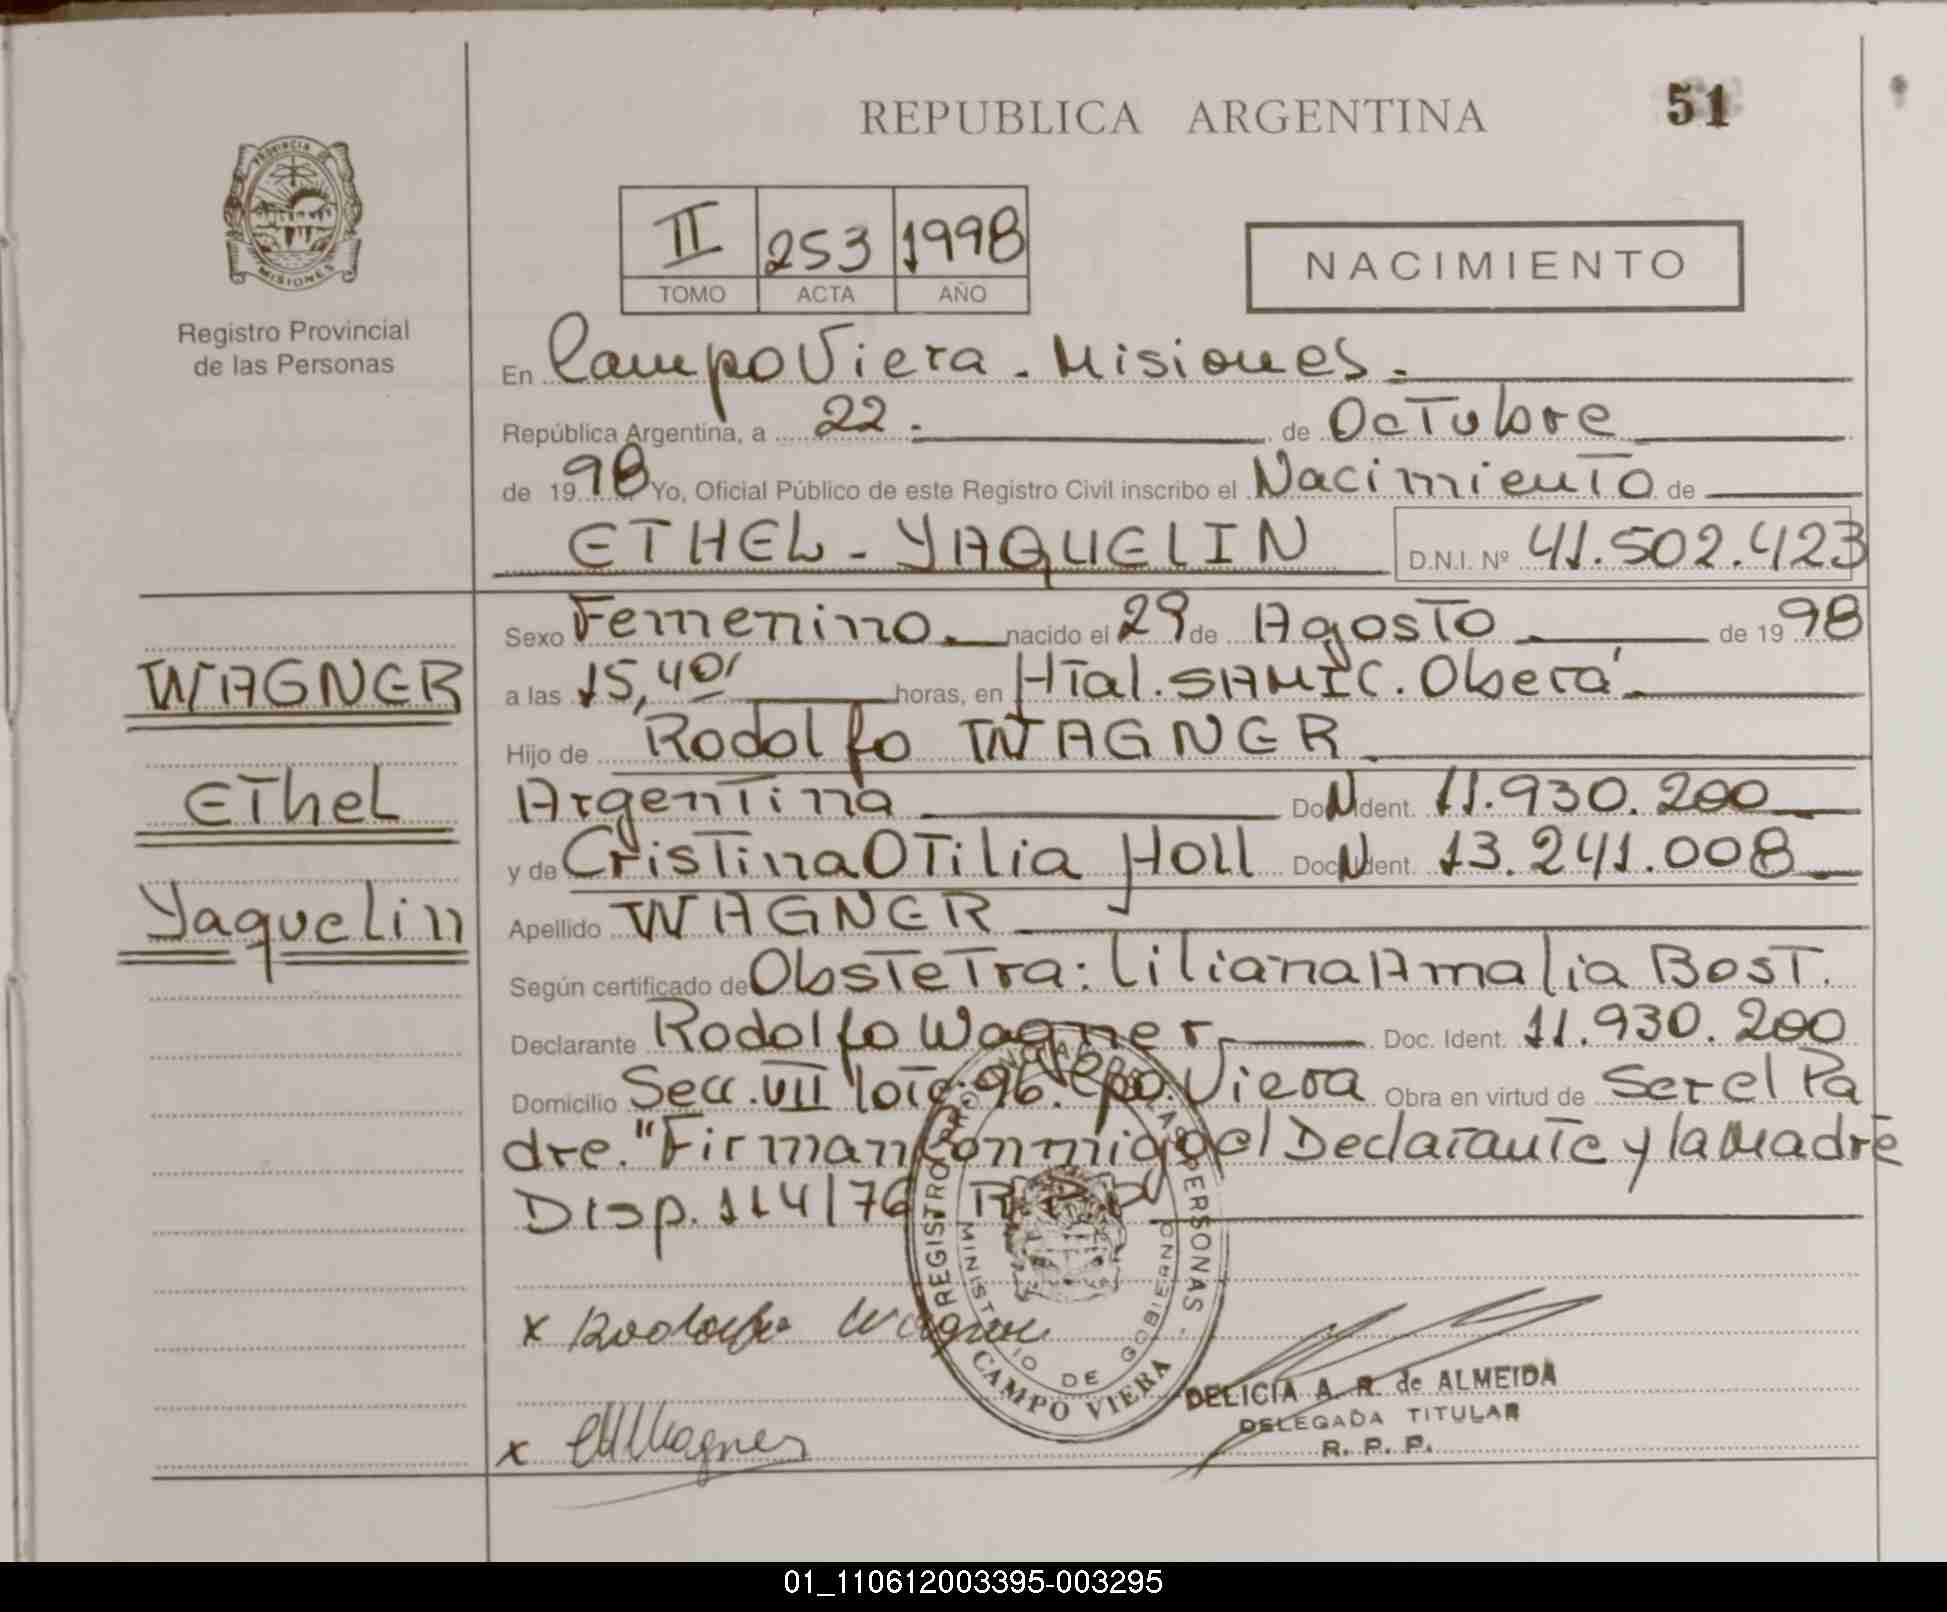 REPUBLICA ARGENTINA
51
PROVINCIA DE
MISIONES
Registro Provincial
de las Personas
II 253 1998
TOMO ACTA AÑO
NACIMIENTO
En Campo Viera - Misiones.-
República Argentina, a 22.- de Octubre
de 1998 Yo, Oficial Público de este Registro Civil inscribo el Nacimiento de
ETHEL - YAQUELIN D.N.I. Nº 41.502.423
Sexo Femenino. nacido el 29 de Agosto de 1998
a las 15,40' horas, en Htal. SAMIC. Oberá
Hijo de Rodolfo WAGNER
Argentina Doc. Ident. N 11.930.200
y de Cristina Otilia Holl Doc. Ident. N 13.241.008
Apellido WAGNER
Según certificado de Obstetra: Liliana Amalia Bost.
Declarante Rodolfo Wagner Doc. Ident. 11.930.200
Domicilio Secc. VII lote 96. Cpo. Viera Obra en virtud de Ser el Pa
dre. "Firman Conmigo el Declarante y la Madre
Disp. 114/76 R.P.P
WAGNER
Ethel
Yaquelin
x Rodolfo Wagner
x Wagner
REGISTRO PROVINCIAL DE LAS PERSONAS -
MINISTERIO DE GOBIERNO
CAMPO VIERA
DELICIA A. R. de ALMEIDA
DELEGADA TITULAR
R. P. P.
01_110612003395-003295